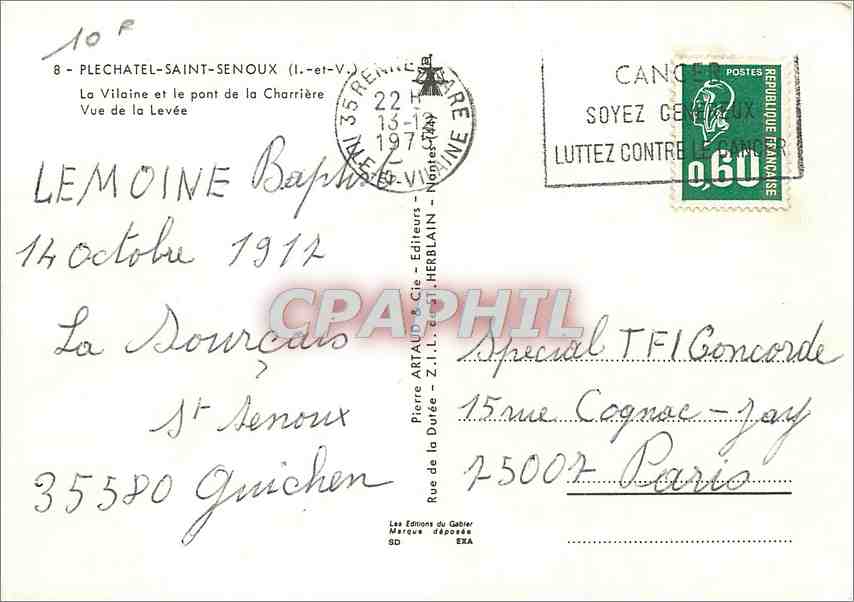 10 F
8 - PLECHATEL-SAINT-SENOUX (I.-et-V.)
La Vilaine et le pont de la Charrière
Vue de la Levée
35 RENNES GARE
22 H
13-12
1975
ILLE-ET-VILAINE
CANCER
SOYEZ GENEREUX
LUTTEZ CONTRE LE CANCER
POSTES
REPUBLIQUE FRANÇAISE
0,60
LEMOINE Baptiste
14 octobre 1912
La Sourçais
St Senoux
35580 Guichen
Pierre ARTAUD & Cie - Editeurs -
Rue de la Dutée - Z.I.L. de ST. HERBLAIN - Nantes (44)
CPAPHIL
Special TF1 Concorde
15 rue Cognac-Jay
75007 Paris
Les Editions du Gabier
Marque déposée
SD EXA